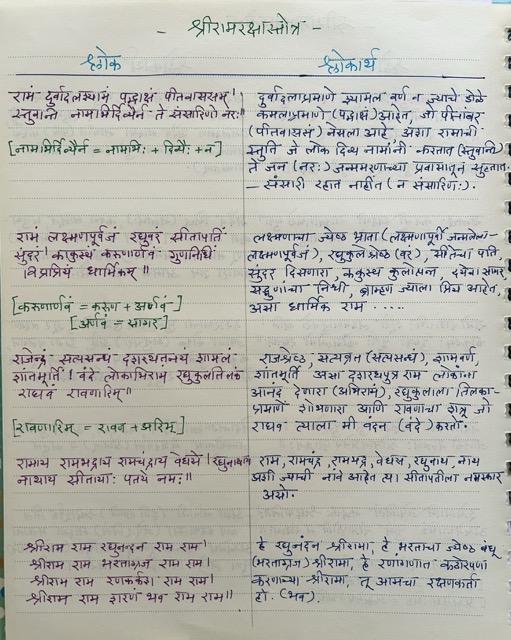 - श्रीरामरक्षास्तोत्र -
श्लोक
श्लोकार्थ
रामं दुर्वादलश्यामं पद्माक्षं पीतवाससम् ।
स्तुवन्ति नामाभिर्दिव्यैर्न ते संसारिणो नरः॥
[नामाभिर्दिव्यैर्न = नामाभिः + दिव्यैः + न]
दुर्वादलाप्रमाणे श्यामल वर्ण न ज्याचे डोळे
कमलाप्रमाणे (पद्माक्षं) आहेत, जो पीतांबर
(पीतवाससं) नेसला आहे अशा रामाची
स्तुति जे लोक दिव्य नामांनी करतात (स्तुवन्ति)
ते जन (नरः) जन्ममरणाच्या प्रवासातून सुटतात-
– संसारी रहात नाहीत (न संसारिणः).
रामं लक्ष्मणपूर्वजं रघुवरं सीतापतिं
सुंदरं । काकुत्स्थं करुणार्णवं गुणनिधिं
विप्रप्रियं धार्मिकम् ॥
[करुणार्णवं = करुण + अर्णवं-]
[अर्णवं = सागर]
लक्ष्मणाचा ज्येष्ठ भ्राता (लक्ष्मणापूर्वी जन्मलेला-
लक्ष्मणपूर्वजं), रघुकुलश्रेष्ठ (वरं), सीतेचा पति,
सुंदर दिसणारा, ककुत्स्थ कुलोत्पन्न, दयेचा सागर
सद्गुणांचा निधी, ब्राम्हण ज्याला प्रिय आहेत,
असा धार्मिक राम .....
राजेन्द्रं सत्यसन्धं दशरथतनयं शामलं
शांतमूर्तिं । वंदे लोकाभिरामं रघुकुलतिलकं
राघवं रावणारिम्॥
[रावणारिम् = रावण + अरिम्]
राजश्रेष्ठ सत्यव्रत (सत्यसन्धं), शामवर्ण,
शांतमूर्ति असा दशरथपुत्र राम लोकांना
आनंद देणारा (अभिरामं), रघुकुलाला तिलका-
प्रमाणे शोभणारा आणि रावणाचा शत्रू जो
राघव त्याला मी वंदन (वंदे) करतो.
रामाय रामभद्राय रामचंद्राय वेधसे । रघुनाथाय
नाथाय सीतायाः पतये नमः॥
राम, रामचंद्र, रामभद्र, वेधस, रघुनाथ, नाथ
अशी ज्याची नावे आहेत त्या सीतापतीला नमस्कार
असो.
श्रीराम राम रघुनन्दन राम राम ।
श्रीराम राम भरताग्रज राम राम ।
श्रीराम राम रणकर्कश राम राम ।
श्रीराम राम शरणं भव राम राम ॥
हे रघुनंदन श्रीरामा, हे भरताचा ज्येष्ठ बंधू
(भरताग्रज) श्रीरामा, हे रणांगणात कठोरपणा
करणाऱ्या श्रीरामा, तू आमचा रक्षणकर्ता
हो. (भव).